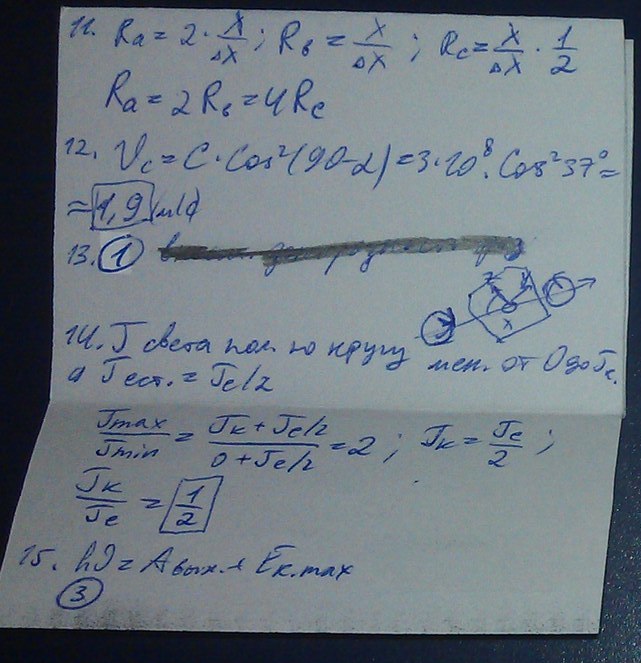 11. Rа = 2 · X/ΔX ; Rв = X/ΔX ; Rс = X/ΔX · 1/2
Rа = 2Rв = 4Rс
12. Vс = C · Cos²(90-α) = 3·10⁸ · Cos²37° =
= 1,9 м/с
13. 1
14. J света пол. по кругу мен. от 0 до Jк.
а Jест. = Je/2
Jmax/Jmin = Jк + Je/2 / 0 + Je/2 = 2 ; Jк = Je/2 ;
Jк/Je = 1/2
15. hν = Aвых. + Eк.max
3